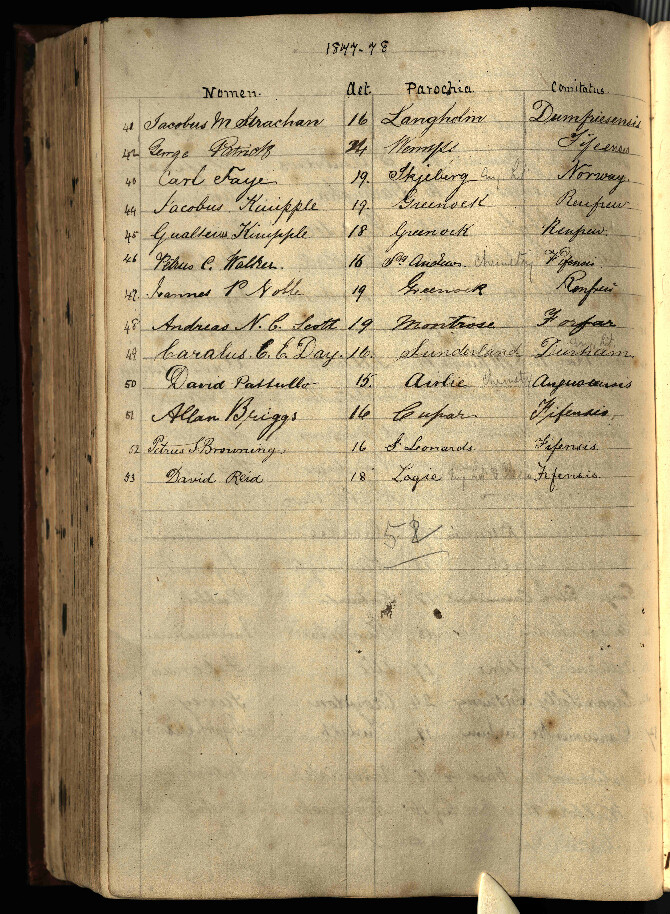 1877-78
Nomen. Aet. Parochia Comitatus.
41 Jacobus M Strachan 16 Langholm Dumfriesensis
42 George Patrick 24
43 Carl Faye 19. Skjeberg Norway
44 Jacobus Kinipple 19. Greenock Renfrew
45 Gualterus Kinipple 18 Greenock Renfrew
46 Petrus C. Walker. 16 St Andrews Chemistry Fifensis
47. Ioannes P Noble 19 Greenock Renfrew
48 Andreas N. C. Scott 19 Montrose Forfar
49 Carolus E. E. Day. 16. Sunderland Durham
50 David Pattullo 15. Airlie Chemistry
51 Allan Briggs 16 Cupar Fifensis
52 Petrus S. Browning. 16 St Leonards Fifensis
53 David Reid 18 Logie Fifensis